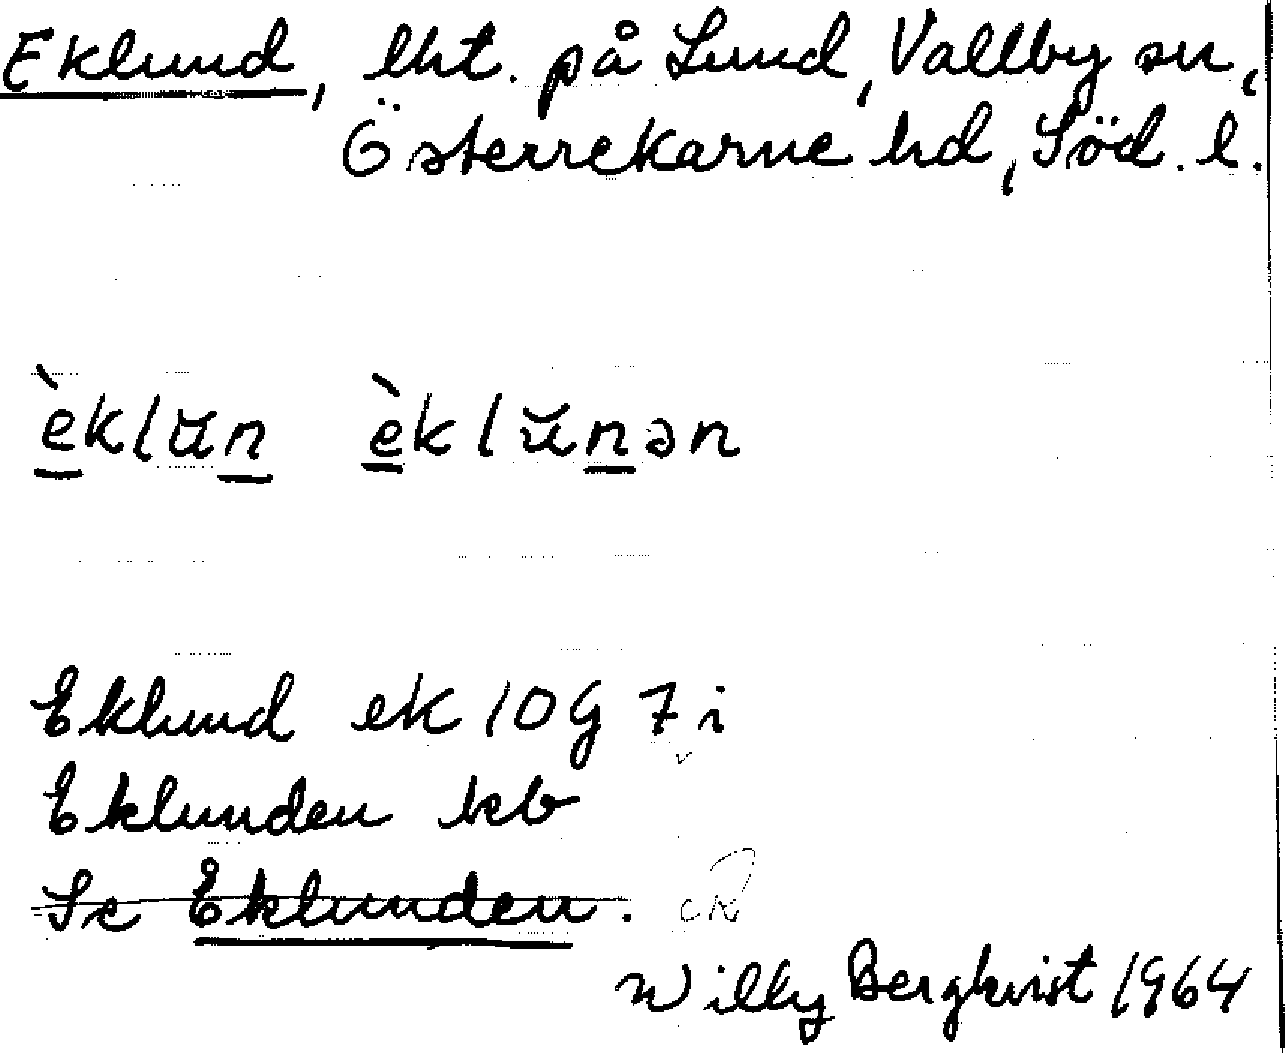 Eklund, lht. på Lund, Vallby sn,
Österrekarne hd, Söd. l.
èklŭn èklŭnən
Eklund ek 10G 7 i
Eklunden kb
Se Eklunden.
Willy Bergkvist 1964